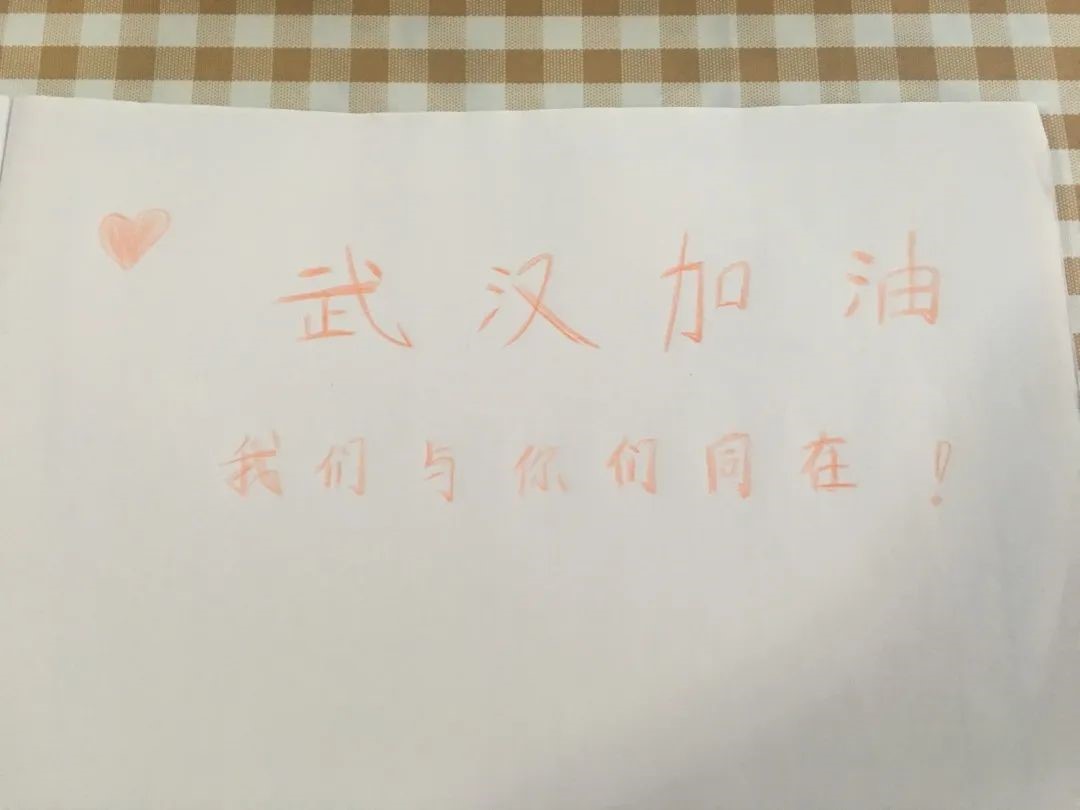 武汉加油
我们与你们同在！